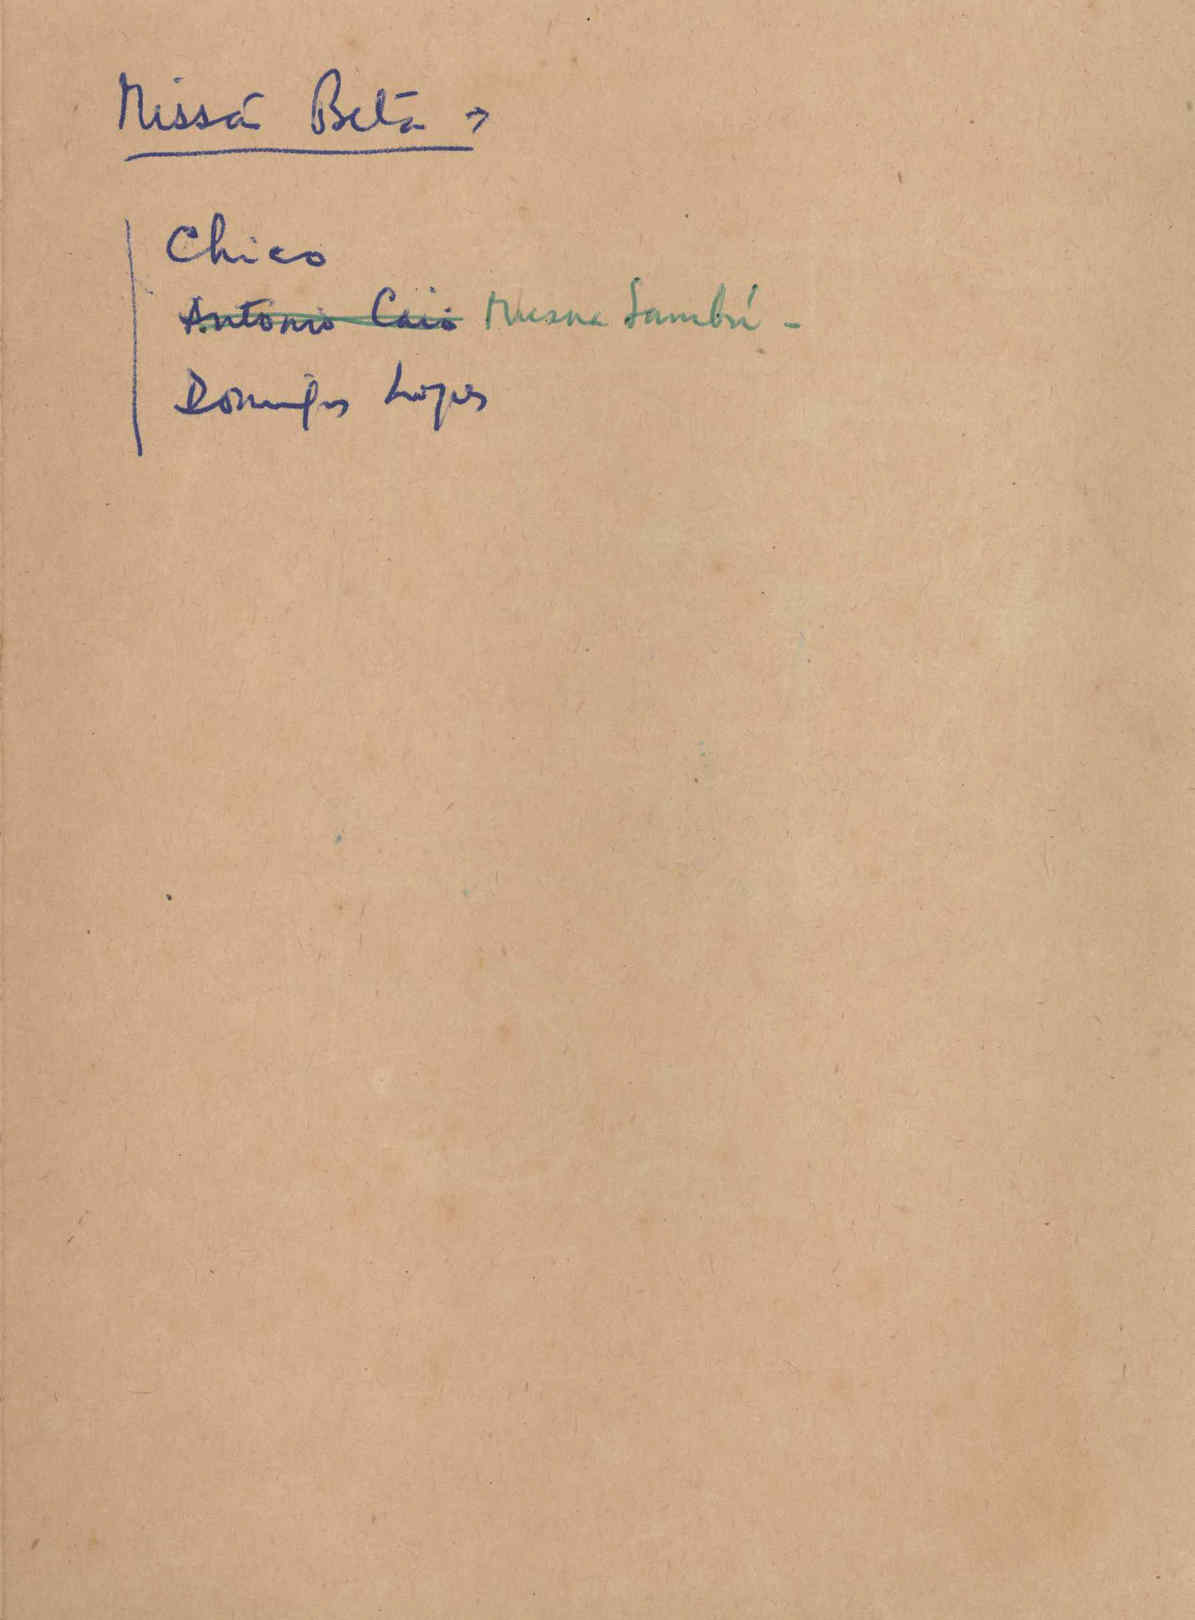 Missão Beta →
Chico
Antonio Caió Musna Sambú -
Domingos Lopes